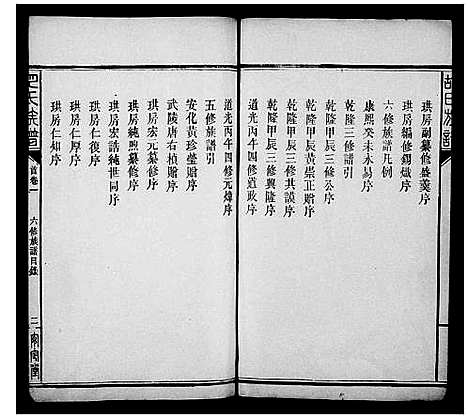 珙房副纂修盛羹序
珙房編修錫熾序
六修族譜凡例
康熙癸未永易序
乾隆三修譜引
乾隆甲辰三修公序
乾隆甲辰黃崇正贈序
乾隆甲辰三修其謨序
乾隆甲辰三修興隆序
道光丙午四修道政序
道光丙午四修元煒序
五修族譜引
安化黃珍瑩贈序
武陵唐右楨贈序
珙房宏元纂修序
珙房純煦纂修序
珙房宏誥純世同序
珙房仁復序
珙房仁厚序
珙房仁知序
氏族譜
首卷一
六修族譜目錄
二